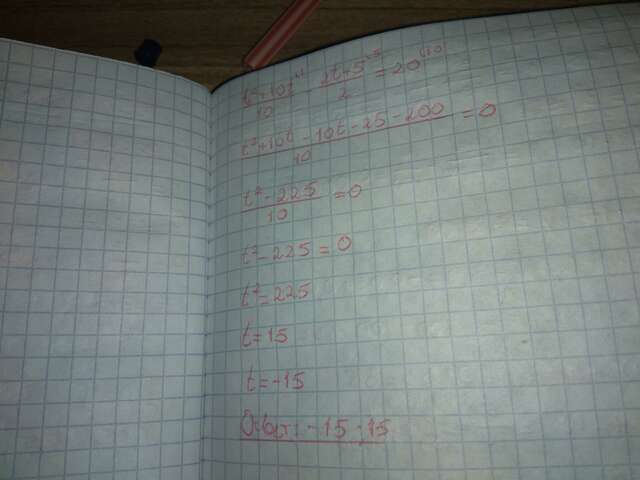 t²+10t\1 / 10 - 2t+5\5 / 2 = 20\10
t²+10t - 10t - 25 - 200 / 10 = 0
t² - 225 / 10 = 0
t² - 225 = 0
t² = 225
t = 15
t = -15
Ответ: -15; 15